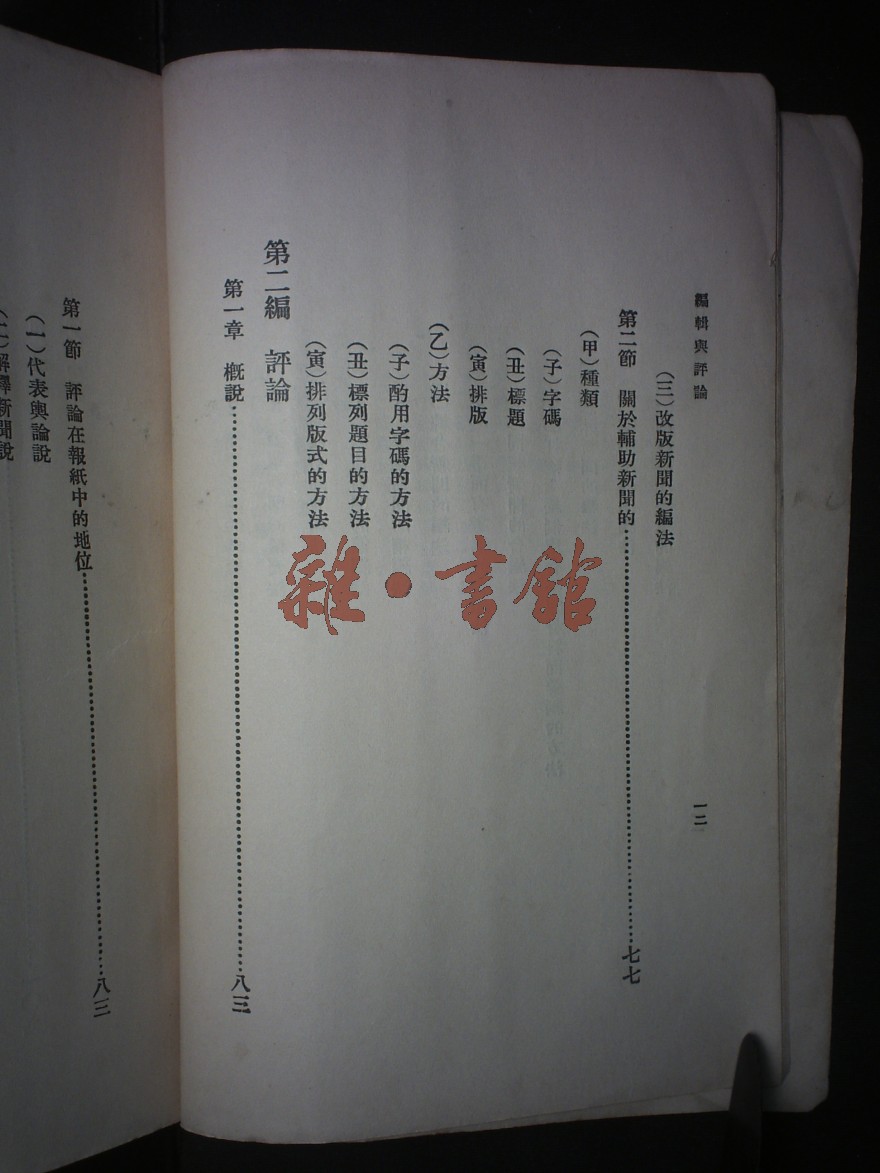 編輯與評論
一二
（三）改版新聞的編法
第二節 關於輔助新聞的⋯⋯⋯⋯⋯⋯⋯⋯⋯⋯⋯⋯七七
（甲）種類
（子）字碼
（丑）標題
（寅）排版
（乙）方法
（子）酌用字碼的方法
（丑）標列題目的方法
（寅）排列版式的方法
第二編 評論
第一章 概說⋯⋯⋯⋯⋯⋯⋯⋯⋯⋯⋯⋯⋯⋯⋯⋯八三
第一節 評論在報紙中的地位⋯⋯⋯⋯⋯⋯⋯⋯⋯⋯八三
（一）代表輿論說
（二）解釋新聞說
雜·書館